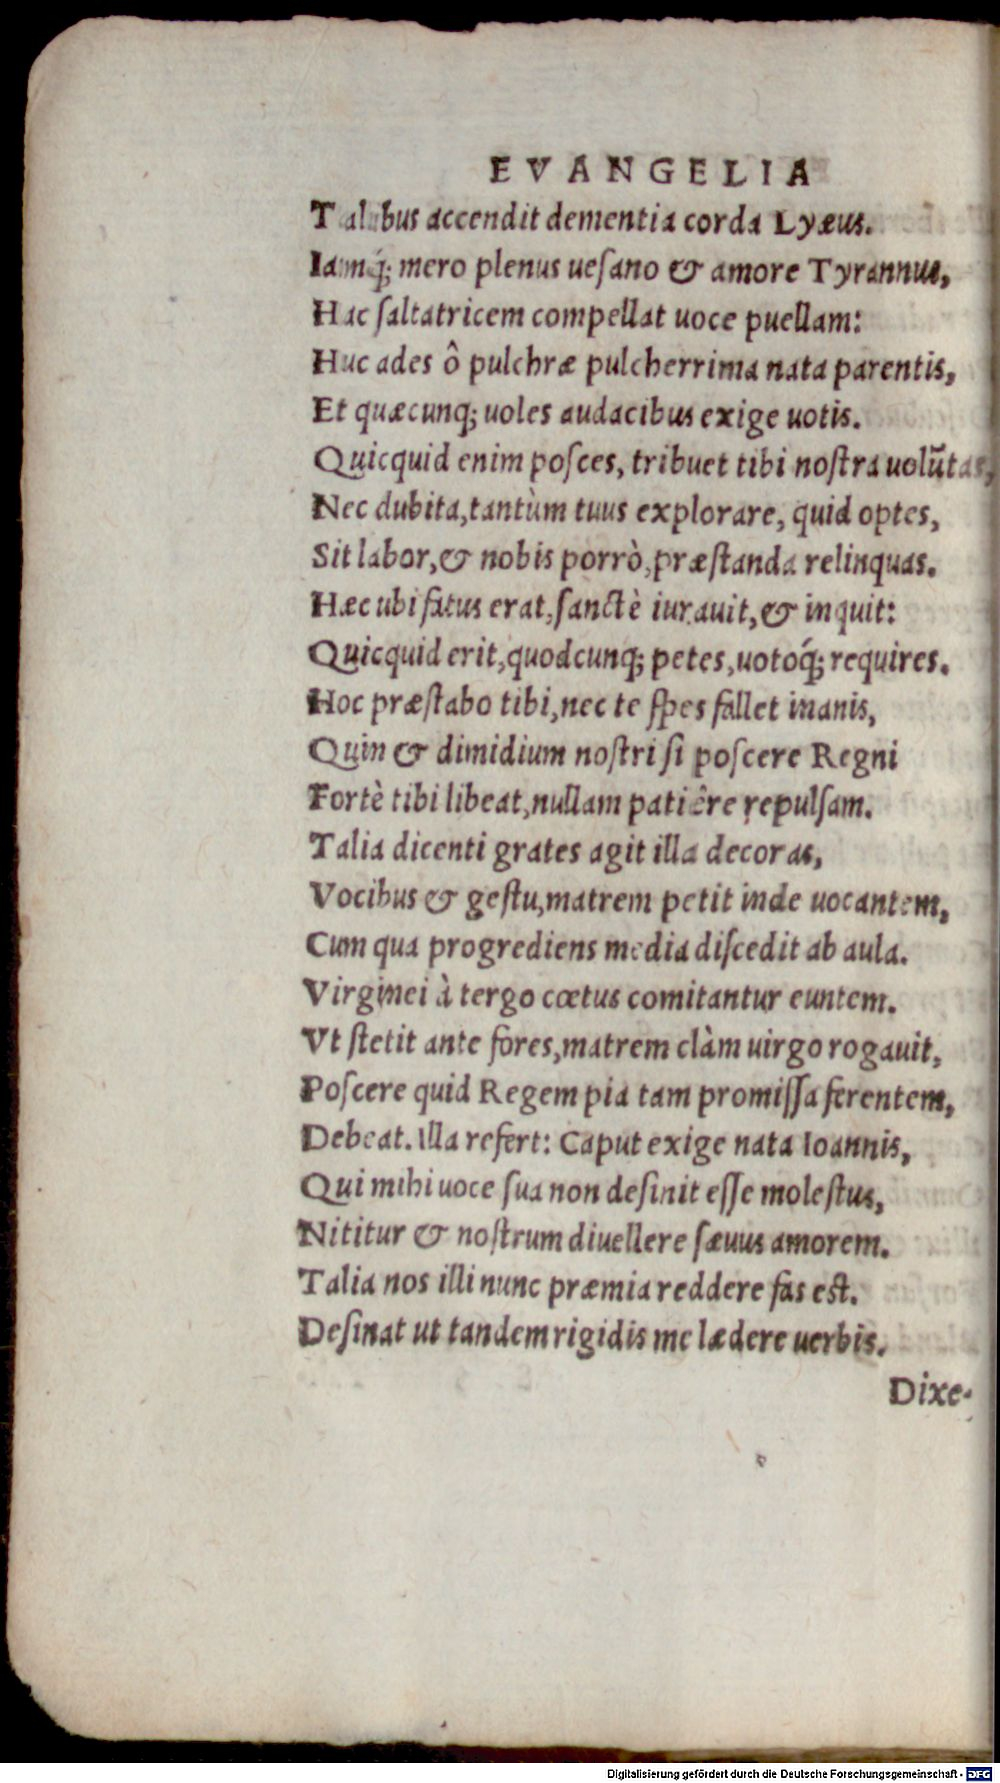 EVANGELIA
Talibus accendit dementia corda Lyæus.
Iamq́; mero plenus uesano & amore Tyrannus,
Hac saltatricem compellat uoce puellam:
Huc ades ô pulchræ pulcherrima nata parentis,
Et quæcunq; uoles audacibus exige uotis.
Quicquid enim posces, tribuet tibi nostra uolūtas,
Nec dubita, tantùm tuus explorare, quid optes,
Sit labor, & nobis porrò, præstanda relinquas.
Hæc ubi fatus erat, sanctè iurauit, & inquit:
Quicquid erit, quodcunq; petes, uotoq́; requires.
Hoc præstabo tibi, nec te spes fallet inanis,
Quin & dimidium nostri si poscere Regni
Fortè tibi libeat, nullam patiêre repulsam.
Talia dicenti grates agit illa decoras,
Vocibus & gestu, matrem petit inde uocantem,
Cum qua progrediens media discedit ab aula.
Virginei à tergo cœtus comitantur euntem.
Vt stetit ante fores, matrem clàm uirgo rogauit,
Poscere quid Regem pia tam promissa ferentem,
Debeat. Illa refert: Caput exige nata Ioannis,
Qui mihi uoce sua non desinit esse molestus,
Nititur & nostrum diuellere sæuus amorem.
Talia nos illi nunc præmia reddere fas est.
Desinat ut tandem rigidis me lædere uerbis.
Dixe-
Digitalisierung gefördert durch die Deutsche Forschungsgemeinschaft - DFG